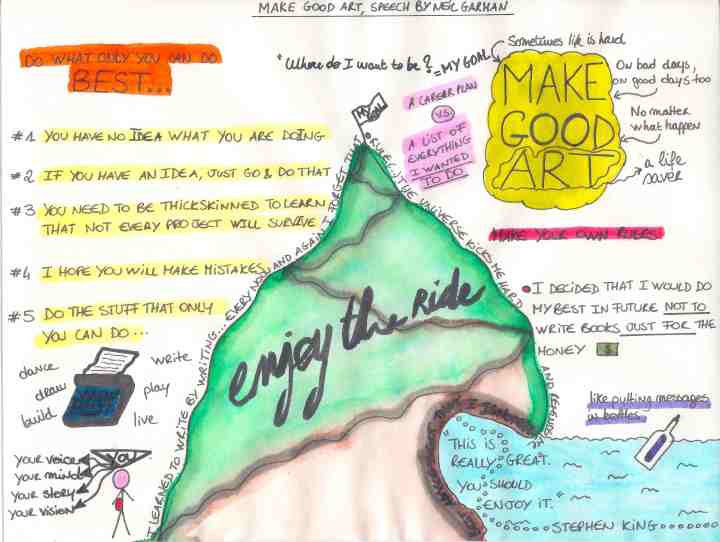 MAKE GOOD ART, SPEECH BY NEIL GAIMAN
DO WHAT ONLY YOU CAN DO
BEST...
"Where do I want to be? = MY GOAL
MY GOAL
Sometimes life is hard
MAKE
GOOD
ART
On bad days,
on good days too
No matter
what happen
a life
saver
A CAREER PLAN
VS.
A LIST OF
EVERYTHING
I WANTED
TO DO
#1 YOU HAVE NO IDEA WHAT YOU ARE DOING
#2 IF YOU HAVE AN IDEA, JUST GO & DO THAT
#3 YOU NEED TO BE THICKSKINNED TO LEARN
THAT NOT EVERY PROJECT WILL SURVIVE
#4 I HOPE YOU WILL MAKE MISTAKES
#5 DO THE STUFF THAT ONLY
YOU CAN DO...
dance
draw
build
write
play
live
YOUR VOICE
YOUR MIND
YOUR STORY
YOUR VISION
YOU
I LEARNED TO WRITE BY WRITING... EVERY NOW AND AGAIN I FORGET THAT RULE & THE UNIVERSE KICKS ME HARD AND
enjoy the Ride
MAKE YOUR OWN RULES
I DECIDED THAT I WOULD DO
MY BEST IN FUTURE NOT TO
WRITE BOOKS JUST FOR THE
MONEY $
like putting messages
in bottles
"THIS IS
REALLY GREAT.
YOU SHOULD
ENJOY IT."
STEPHEN KING